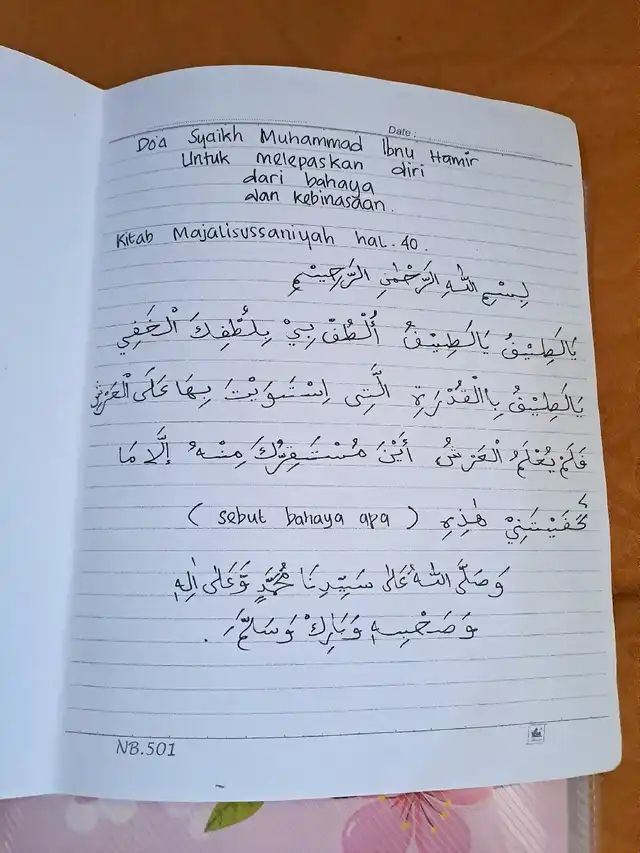 Date :
Do'a Syaikh Muhammad Ibnu Hamir
Untuk melepaskan diri
dari bahaya
dan kebinasaan.
Kitab Majalisussaniyah hal. 40.
بِسْمِ اللّٰهِ الرَّحْمٰنِ الرَّحِيْمِ
يَالَطِيْفُ يَالَطِيْفُ أُلْطُفْ بِيْ بِلُطْفِكَ الْخَفِي
يَالَطِيْفُ بِاالْقُدْرَةِ الَّتِى اِسْتَوَيْتَ بِهَا عَلَى الْعَرْشِ
فَلَمْ يُعْلَمُ الْعَرْشُ أَيْنَ مُسْتَقِرُّكَ مِنْهُ إِلَّا مَا
كَفَيْتَنِيْ هٰذِهِ ( sebut bahaya apa )
وَصَلَّى اللّٰهُ عَلٰى سَيِّدِنَا مُحَمَّدٍ وَّعَلٰى اٰلِهٖ
وَصَحْبِهٖ وَبَارِكْ وَسَلِّمْ .
NB.501